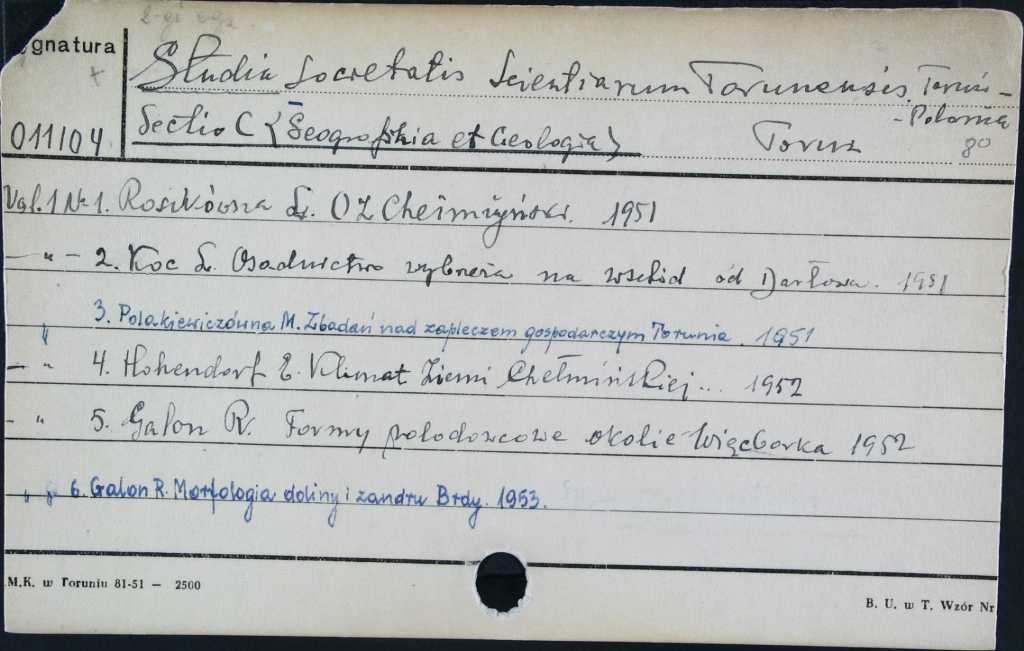 2-gi egz
ygnatura
Studia Societatis Scientiarum Torunensis. Toruń -
- Polonia
011104
Sectio C (Geographia et Geologia) Toruń 8°
Vol. 1 Nr 1. Rosikówna L. Chełmżyński. 1951
— " — 2. Koc L. Osadnictwo wybrzeża na wschód od Darłowa. 1951
" 3. Polakiewiczówna M. Z badań nad zapleczem gospodarczym Torunia. 1951
— " 4. Hohendorf E. Klimat Ziemi Chełmińskiej... 1952
- " 5. Galon R. Formy polodowcowe okolic Więcborka 1952
" " 6. Galon R. Morfologia doliny i zandru Brdy. 1953.
M.K. w Toruniu 81-51 — 2500
B. U. w T. Wzór Nr